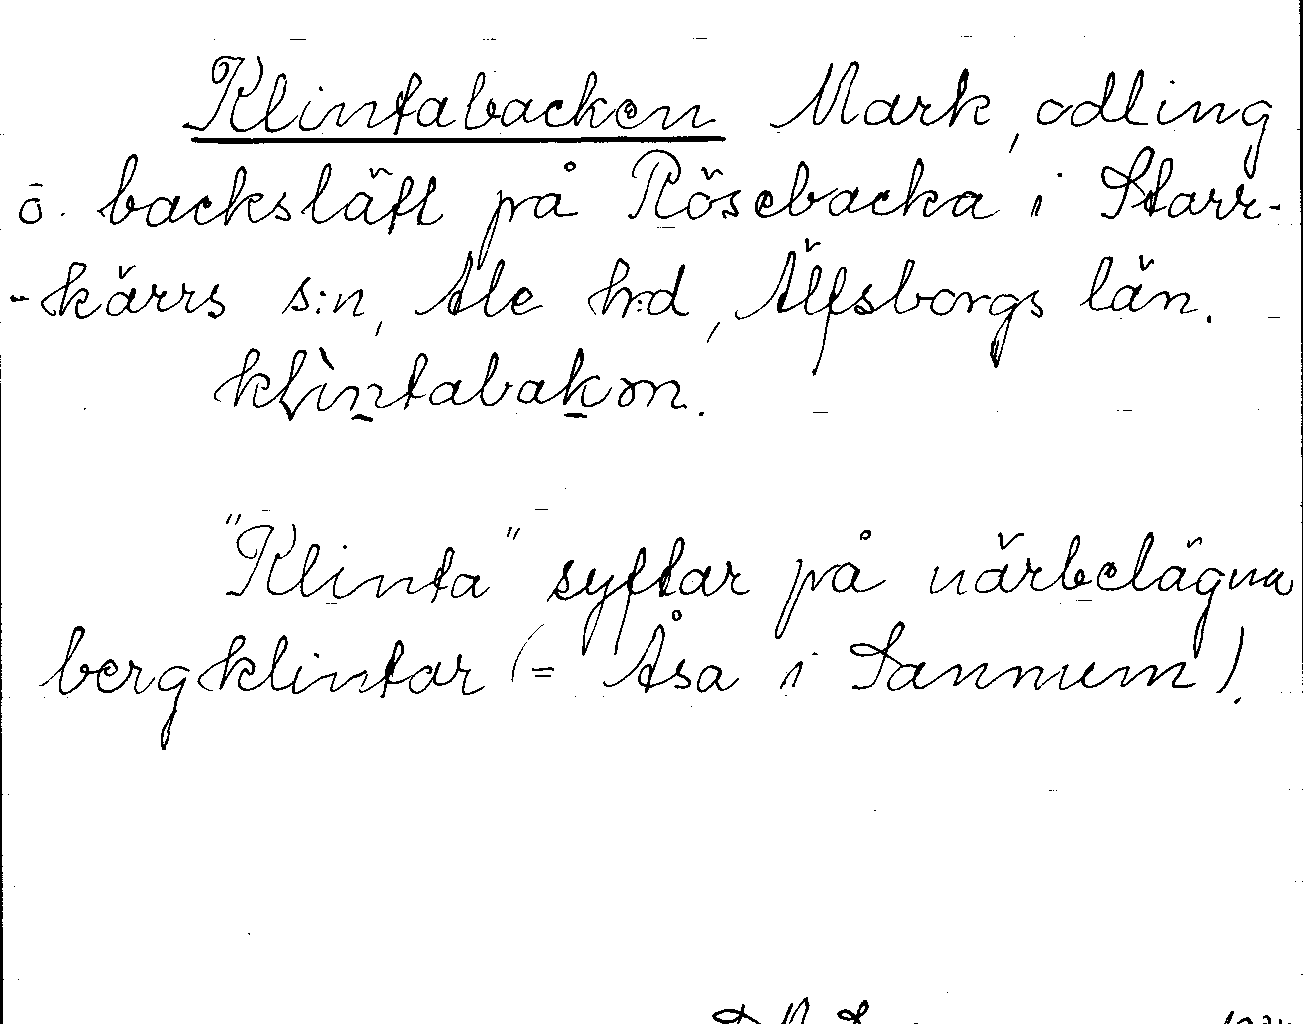 Klintabacken Mark, odling
o. backslätt på Rösebacka i Starr-
-kärrs s:n, Ale h:d, Älfsborgs län.
klìntabakən.
"Klinta" syftar på närbelägna
bergklintar (= Åsa i Sannum).